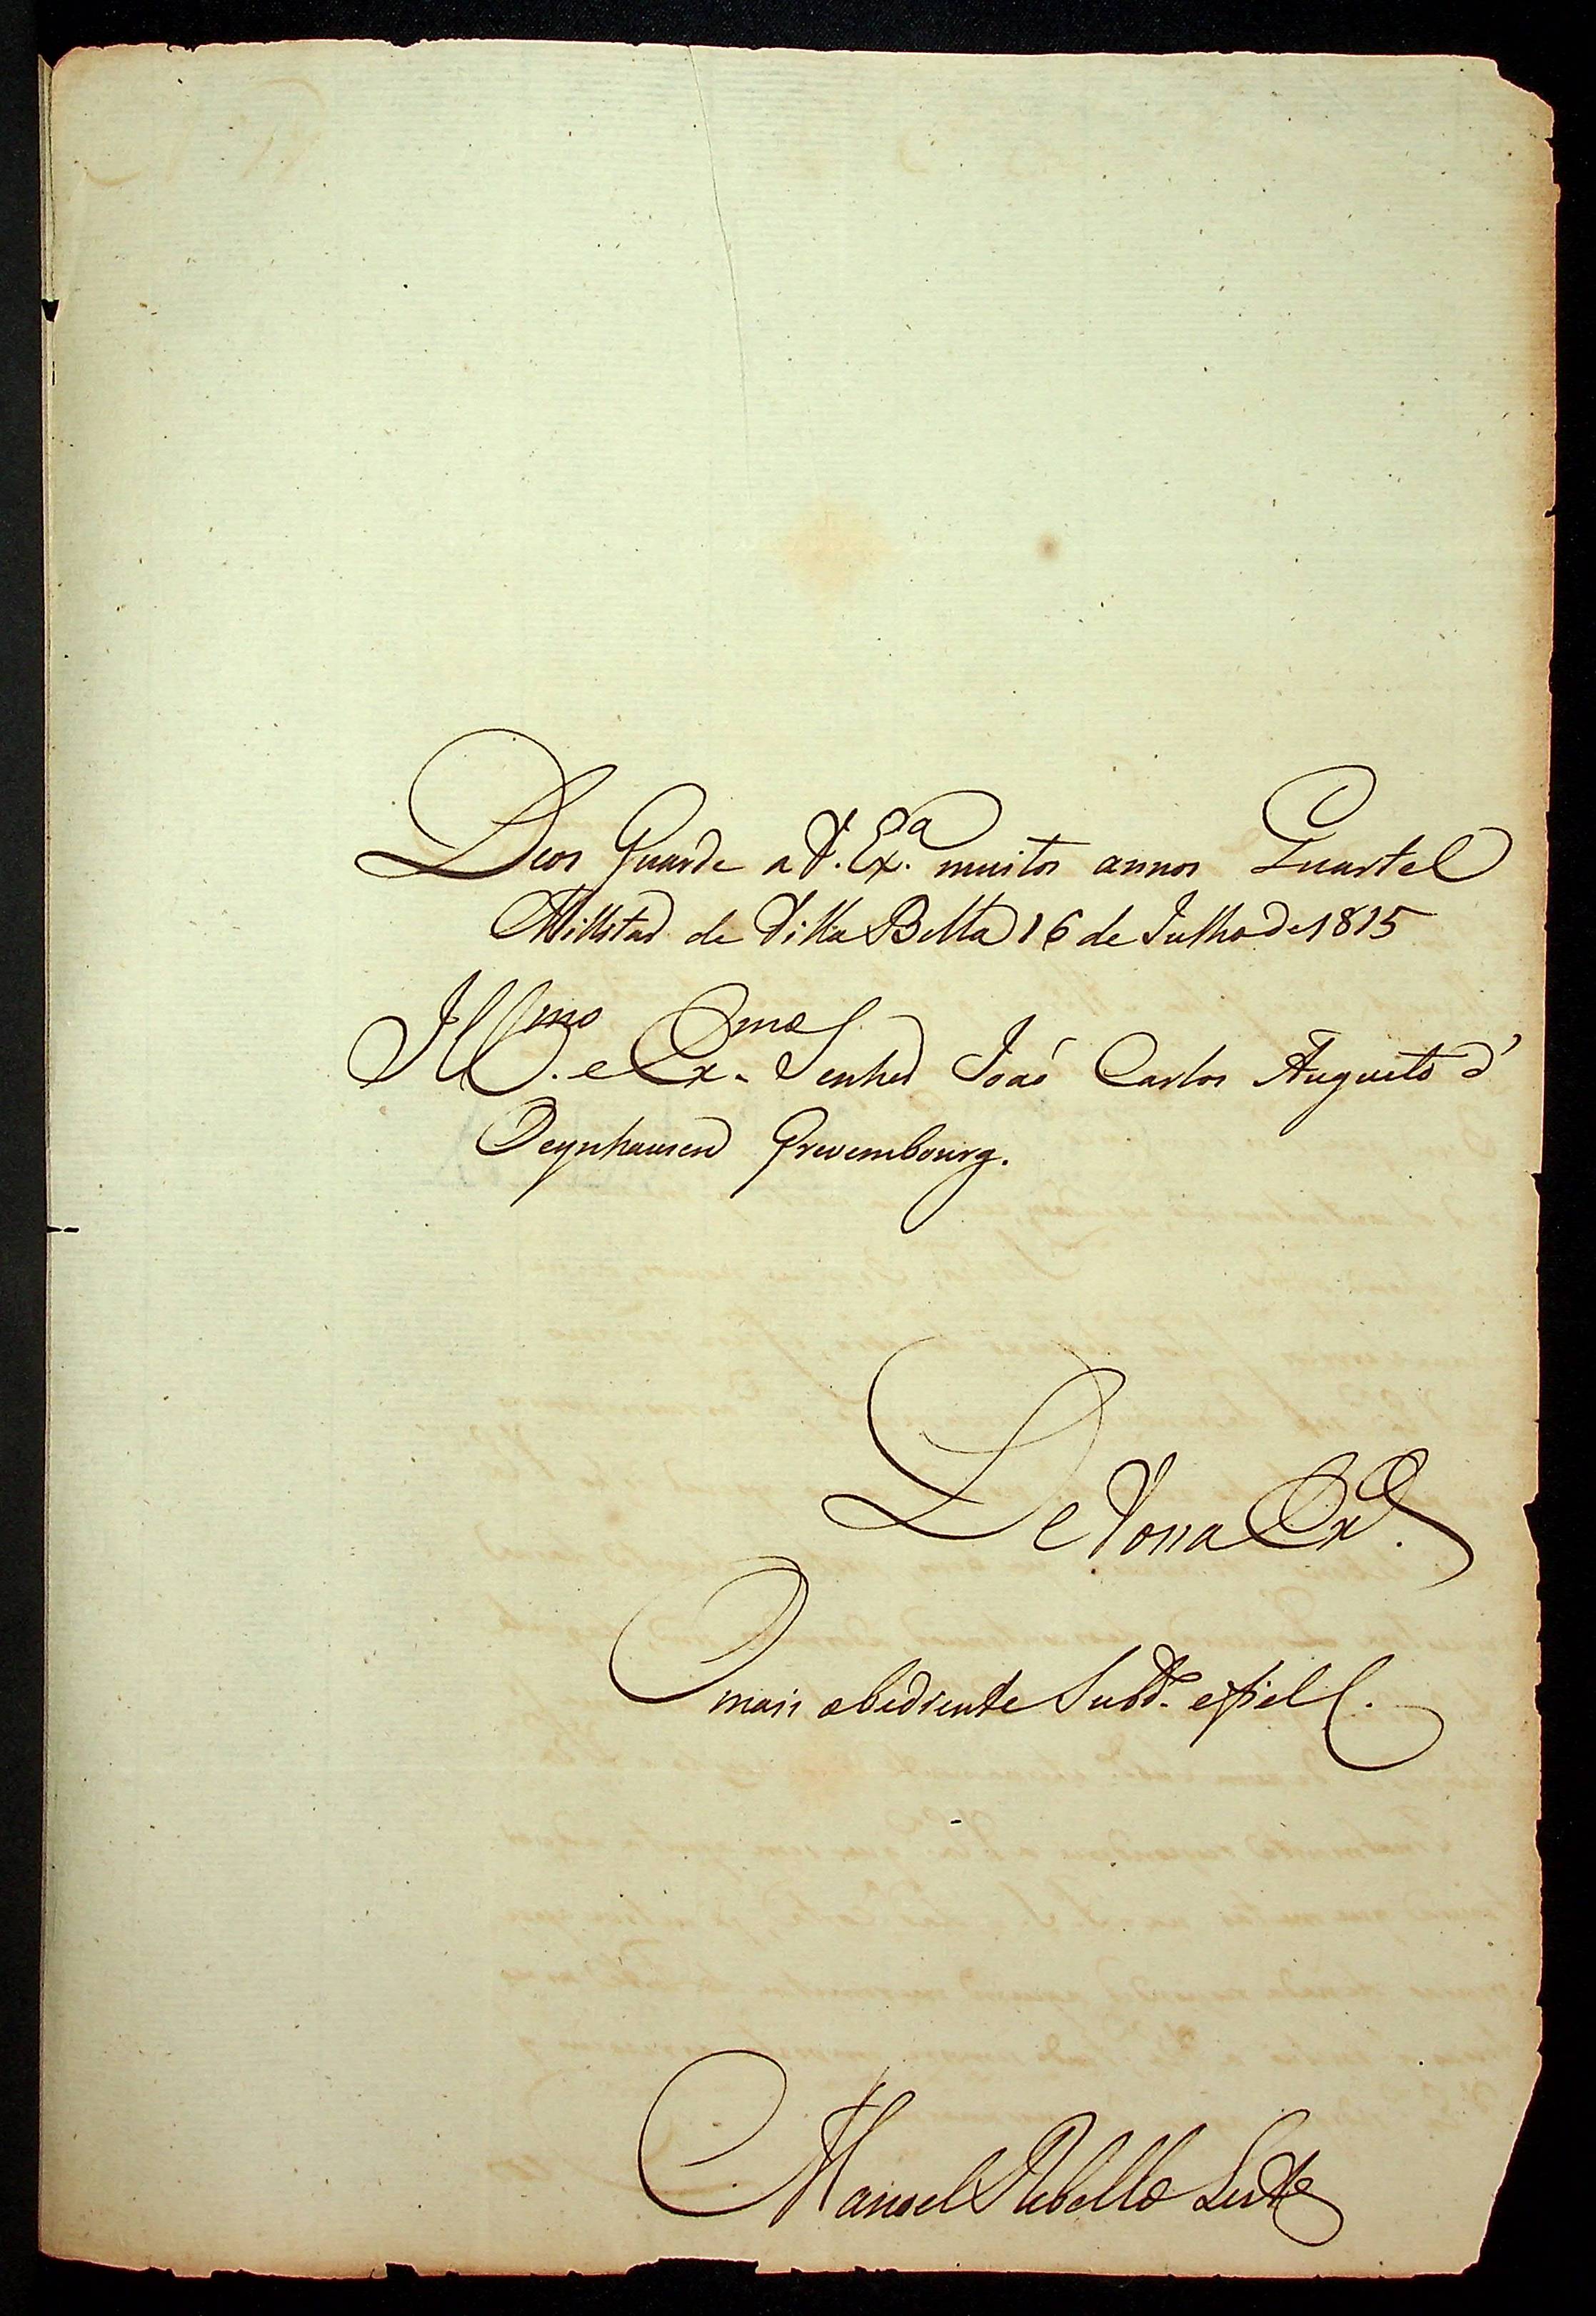 Deos Guarde a V. Ex.ª muitos annos Quartel
Millitar de Villa Bella 16 de Julho de 1815
Ill.mo e Ex.mo Senhor João Carlos Augusto d'
Oeynhausen Grevembourg.
De Vossa Ex.ª
O mais obediente Subd.º e fiel C.
Manoel Rebello Leite